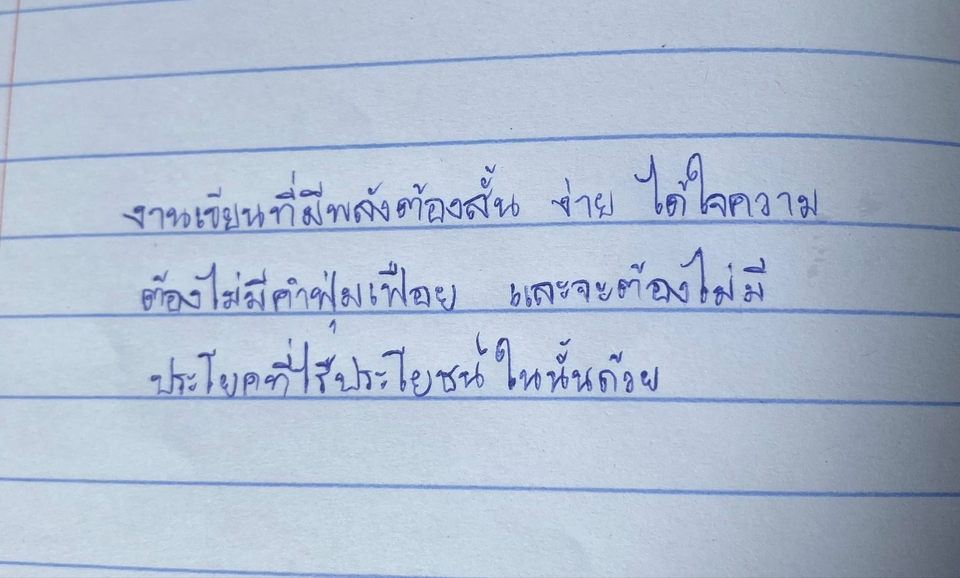 งานเขียนที่มีพลังต้องสั้น ง่าย ได้ใจความ
ต้องไม่มีคำฟุ่มเฟือย และจะต้องไม่มี
ประโยคที่ไร้ประโยชน์ในนั้นด้วย